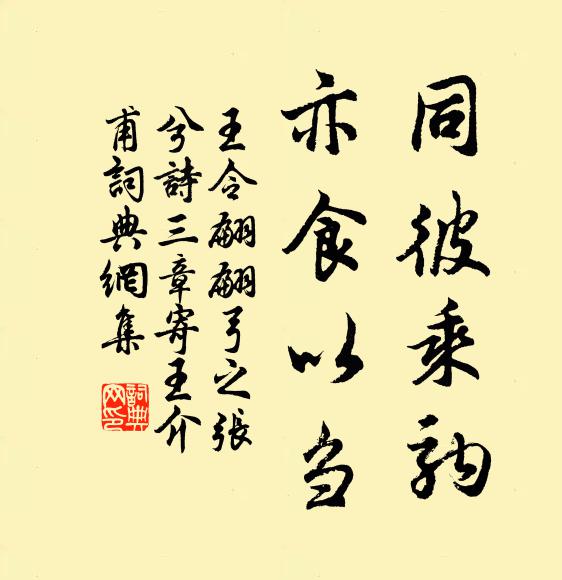 同彼乘駒
亦食以刍
王令翩翩弓之張
兮詩三章寄王介
甫詞典網集
詞典
网印